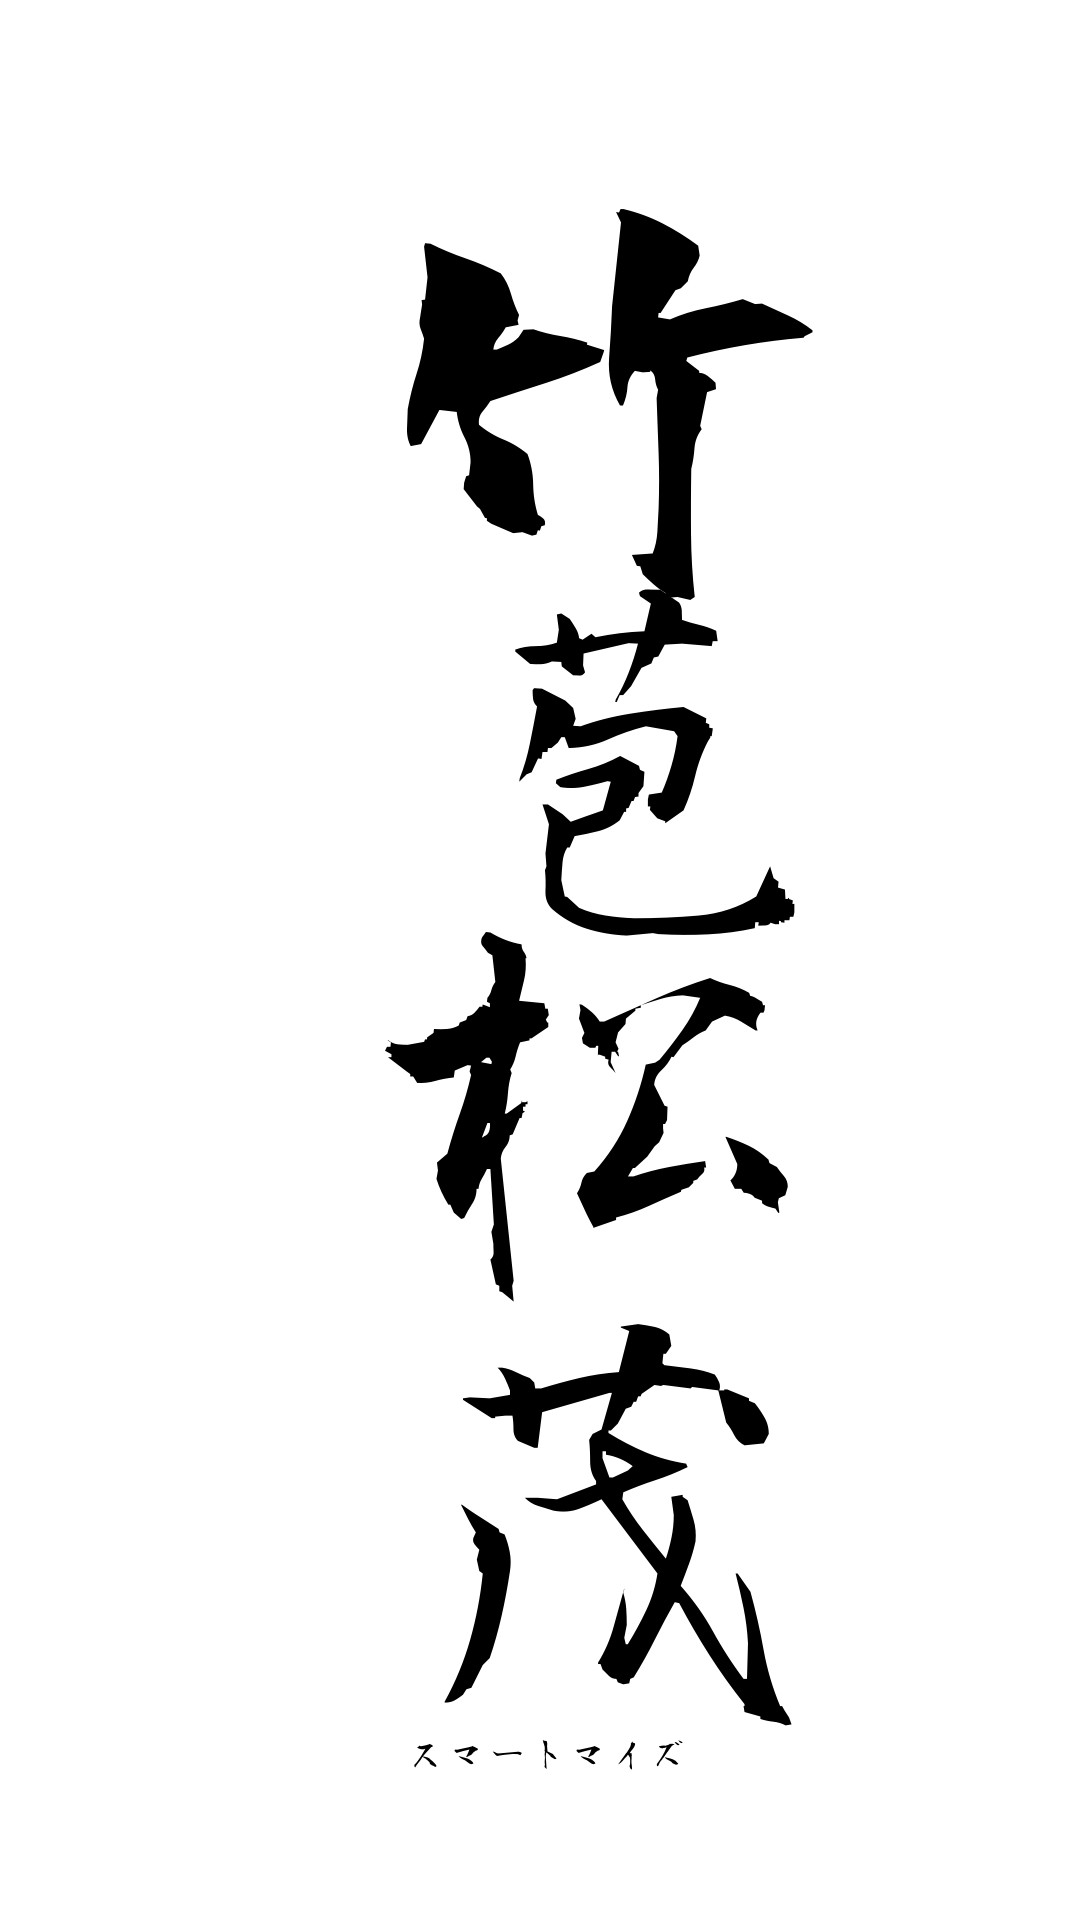 竹苞松茂
スマートマイズ